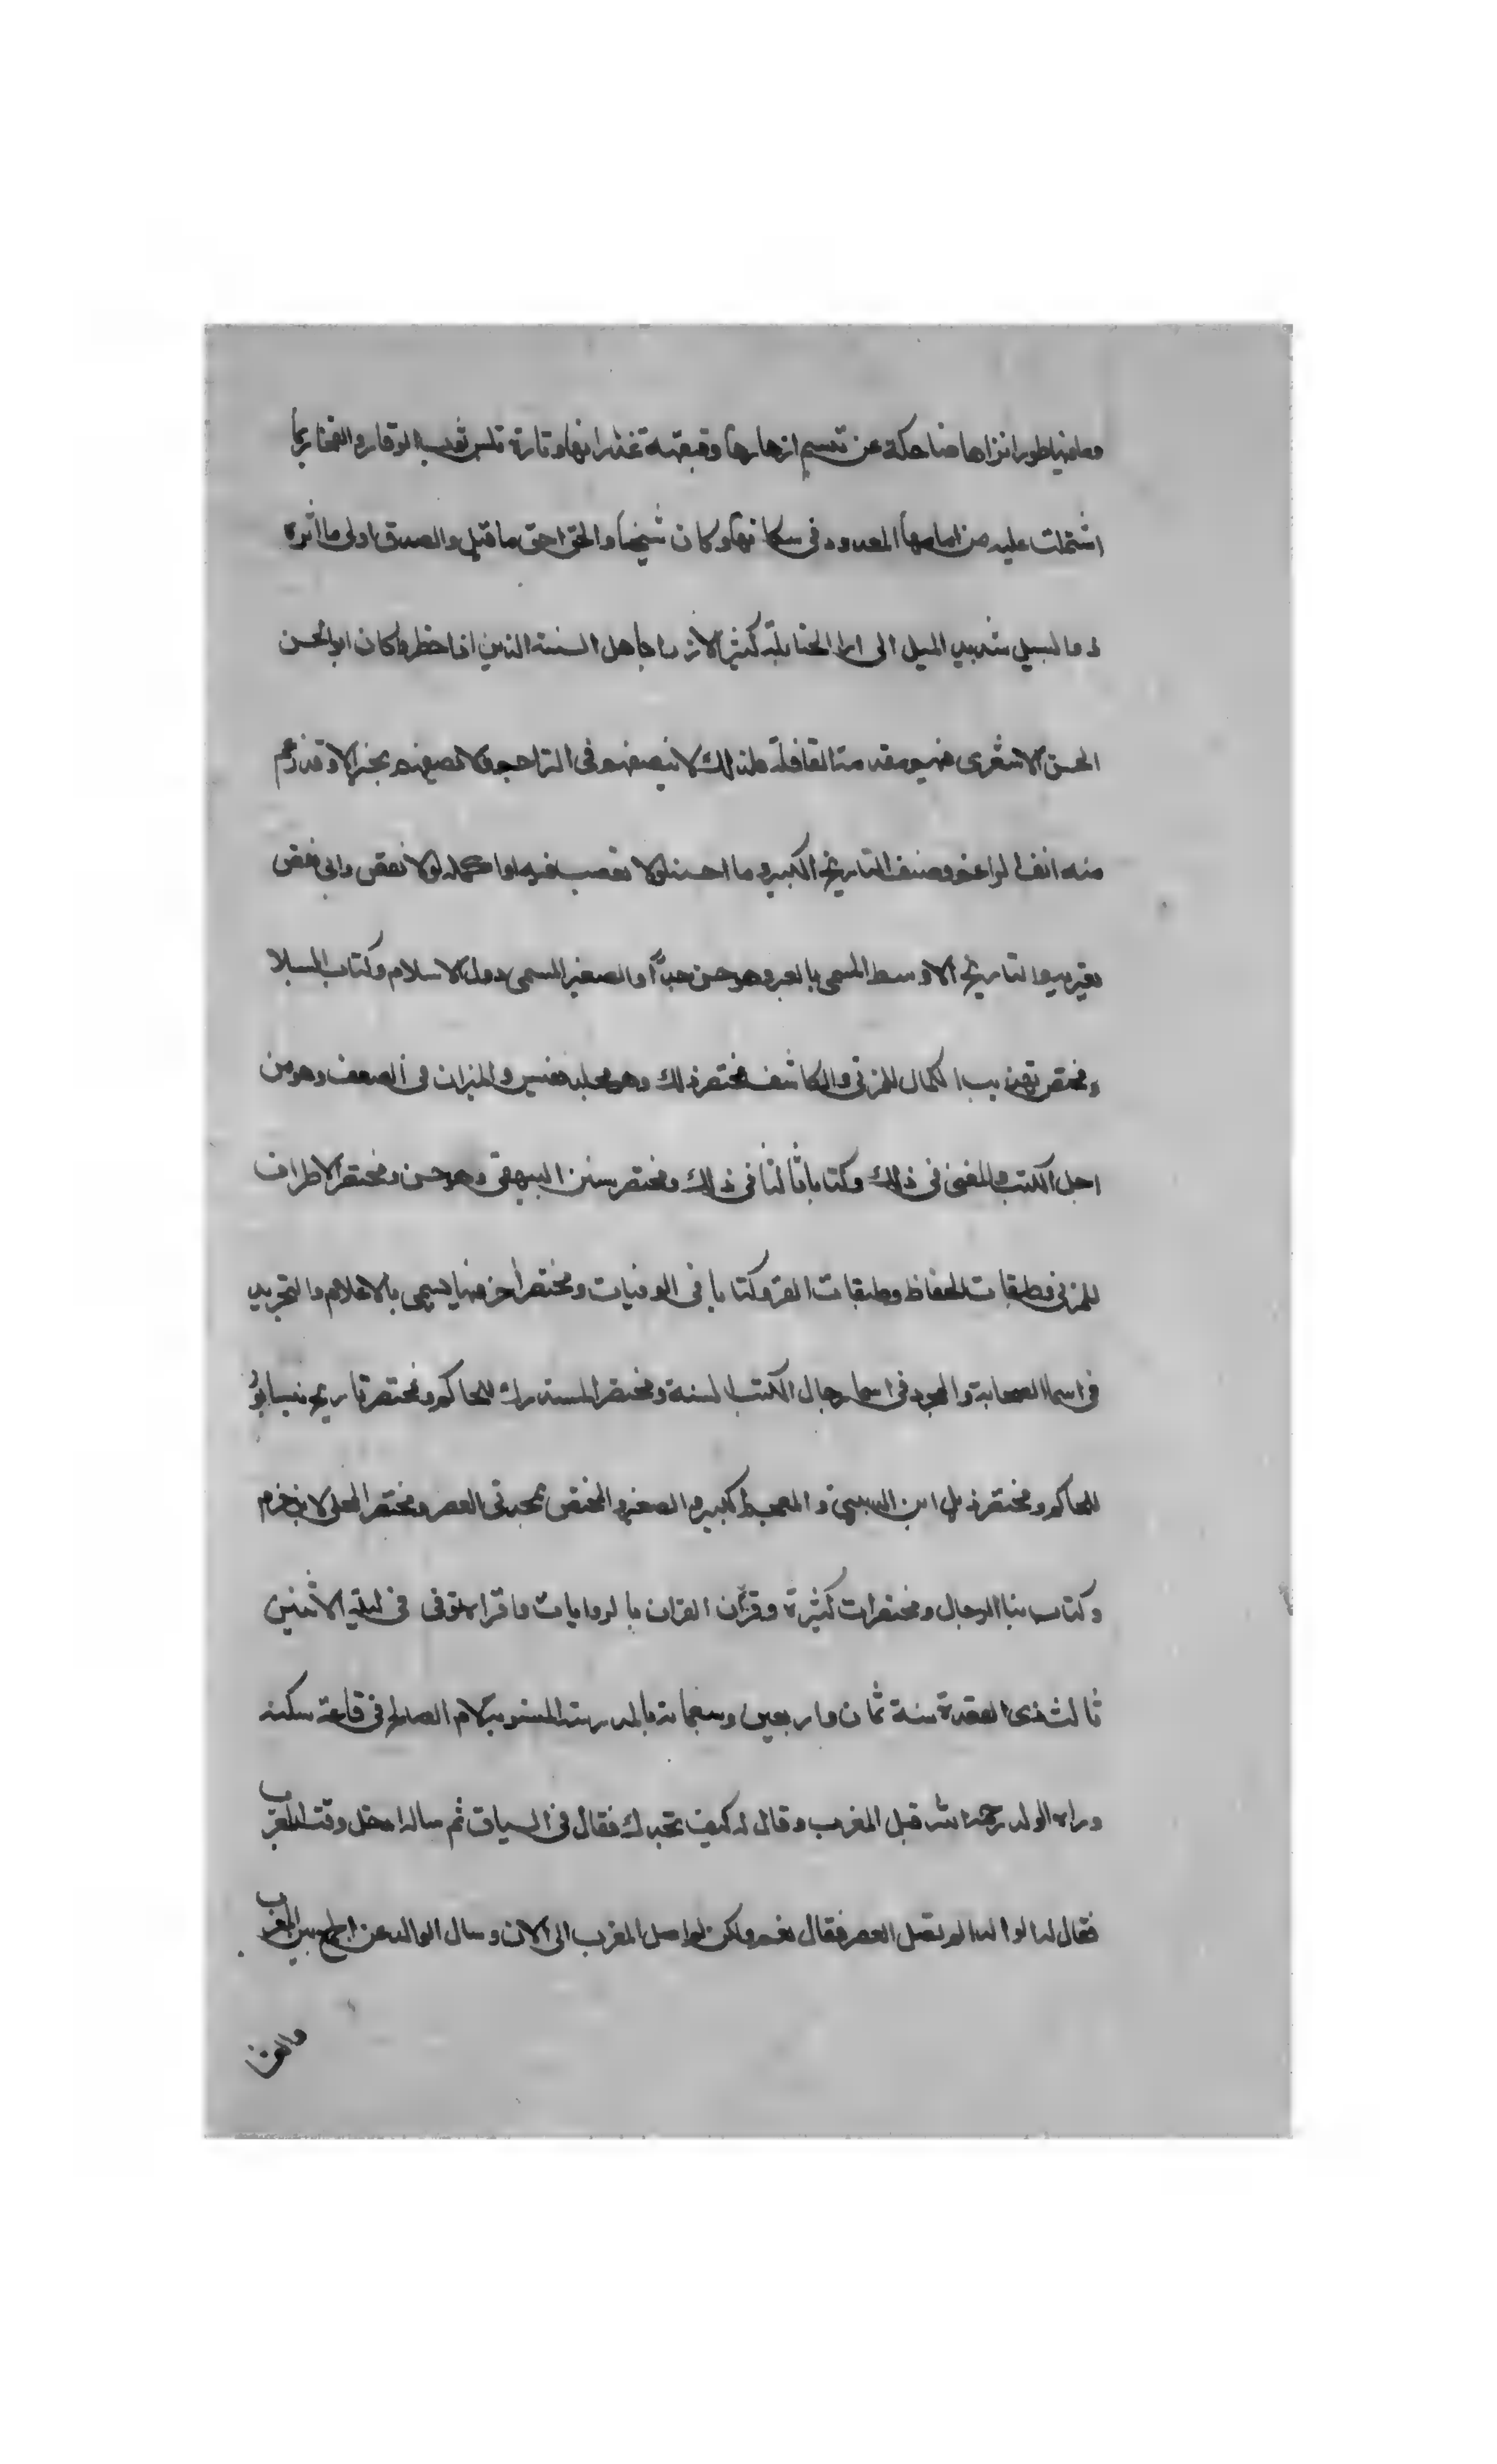 ومعانيها طورا نراها ضاحكة عن تبسم ازهارها وقهقهة غدرانها وتارة تلبس ثوب الوقار والفخار بما
اشتملت عليه من امامها المعدود في سكانها وكان شيخنا والحق احق ما قيل والصدق اولى ما اثره
ذو السبيل شديد الميل الى ارا الحنابلة كثير الازدرا باهل السنة الذين اذا حضروا كان ابو الحسن
الحسن الاشعرى فيهم مقدمة القافلة فلذلك لا ينصفهم في التراجم ولا يصفهم بخير الا وقد رغم
منه انف الراغم وصنف التاريخ الكبير وما احسنه لولا تعصب فيه واكمله لولا نقص واي نقص
يعتريه والتاريخ الاوسط المسمى بالعبر وهو حسن جدا والصغير المسمى دول الاسلام وكتاب النبلا
ومختصر تهذيب الكمال للمزني والكاشف مختصر ذلك وهو مجلد نفيس والميزان في الضعف وهو من
اجل الكتب والمغنى في ذلك وكتابا ثالثا في ذلك ومختصر سنن البيهقي وهو حسن ومختصر الاطراف
للمزني وطبقات الحفاظ وطبقات القرا وكتابا في الوفيات ومختصرا اخر منها يسمى بالاعلام والتجريد
في اسما الصحابة والمجرد في اسما رجال الكتب الستة ومختصر المستدرك للحاكم ومختصر تاريخ نيسابور
للحاكم ومختصر ذيل ابن الدبيثي والمعجم الكبير والصغير والمختص بمحدثي العصر ومختصر المحلى لابن حزم
وكتاب نبا الدجال ومختصرات كثيرة وقرآن القران بالروايات واقراه توفى في ليلة الاثنين
ثالث ذى القعدة سنة ثمان واربعين وسبعمائة بالمدرسة المنسوبة لام الصالح في قاعة سكنه
وراه الوالد رحمه الله قبل المغرب وقال له كيف تجدك فقال في السياق ثم ساله ادخل وقت المغرب
فقال له الوالد الم تصل العصر فقال نعم ولكن لم اصل المغرب الى الان وسال الوالد عن الجمع بين المغرب
والعشا